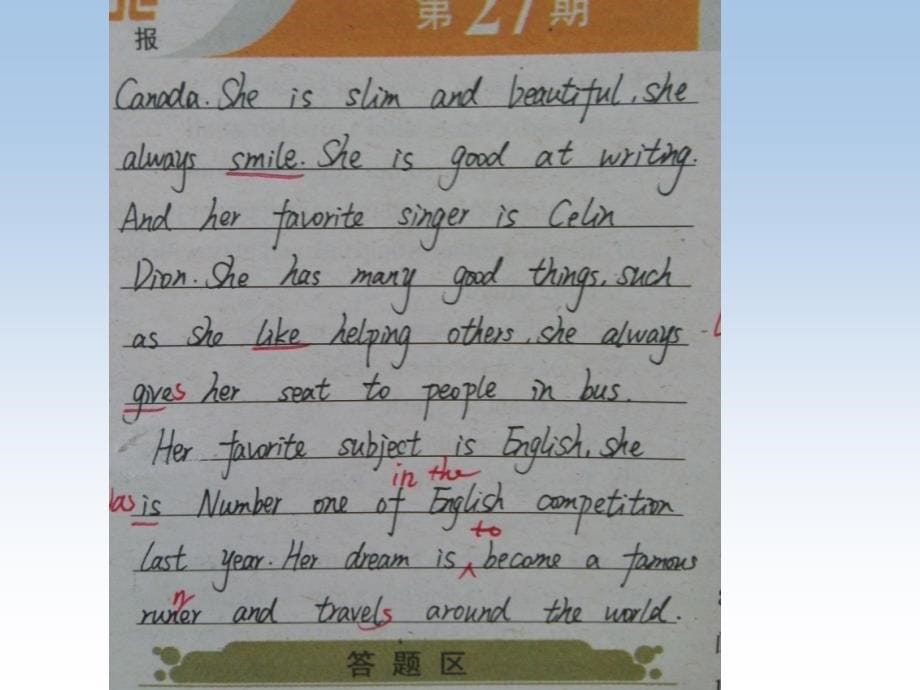 报
第27期
Canada. She is slim and beautiful, she
always smile. She is good at writing.
And her favorite singer is Celin
Dion. She has many good things, such
as she like helping others, she always
gives her seat to people in bus.
Her favorite subject is English, she
in the
is Number one of English competition
to
last year. Her dream is ^ become a famous
n
runer and travels around the world.
答题区